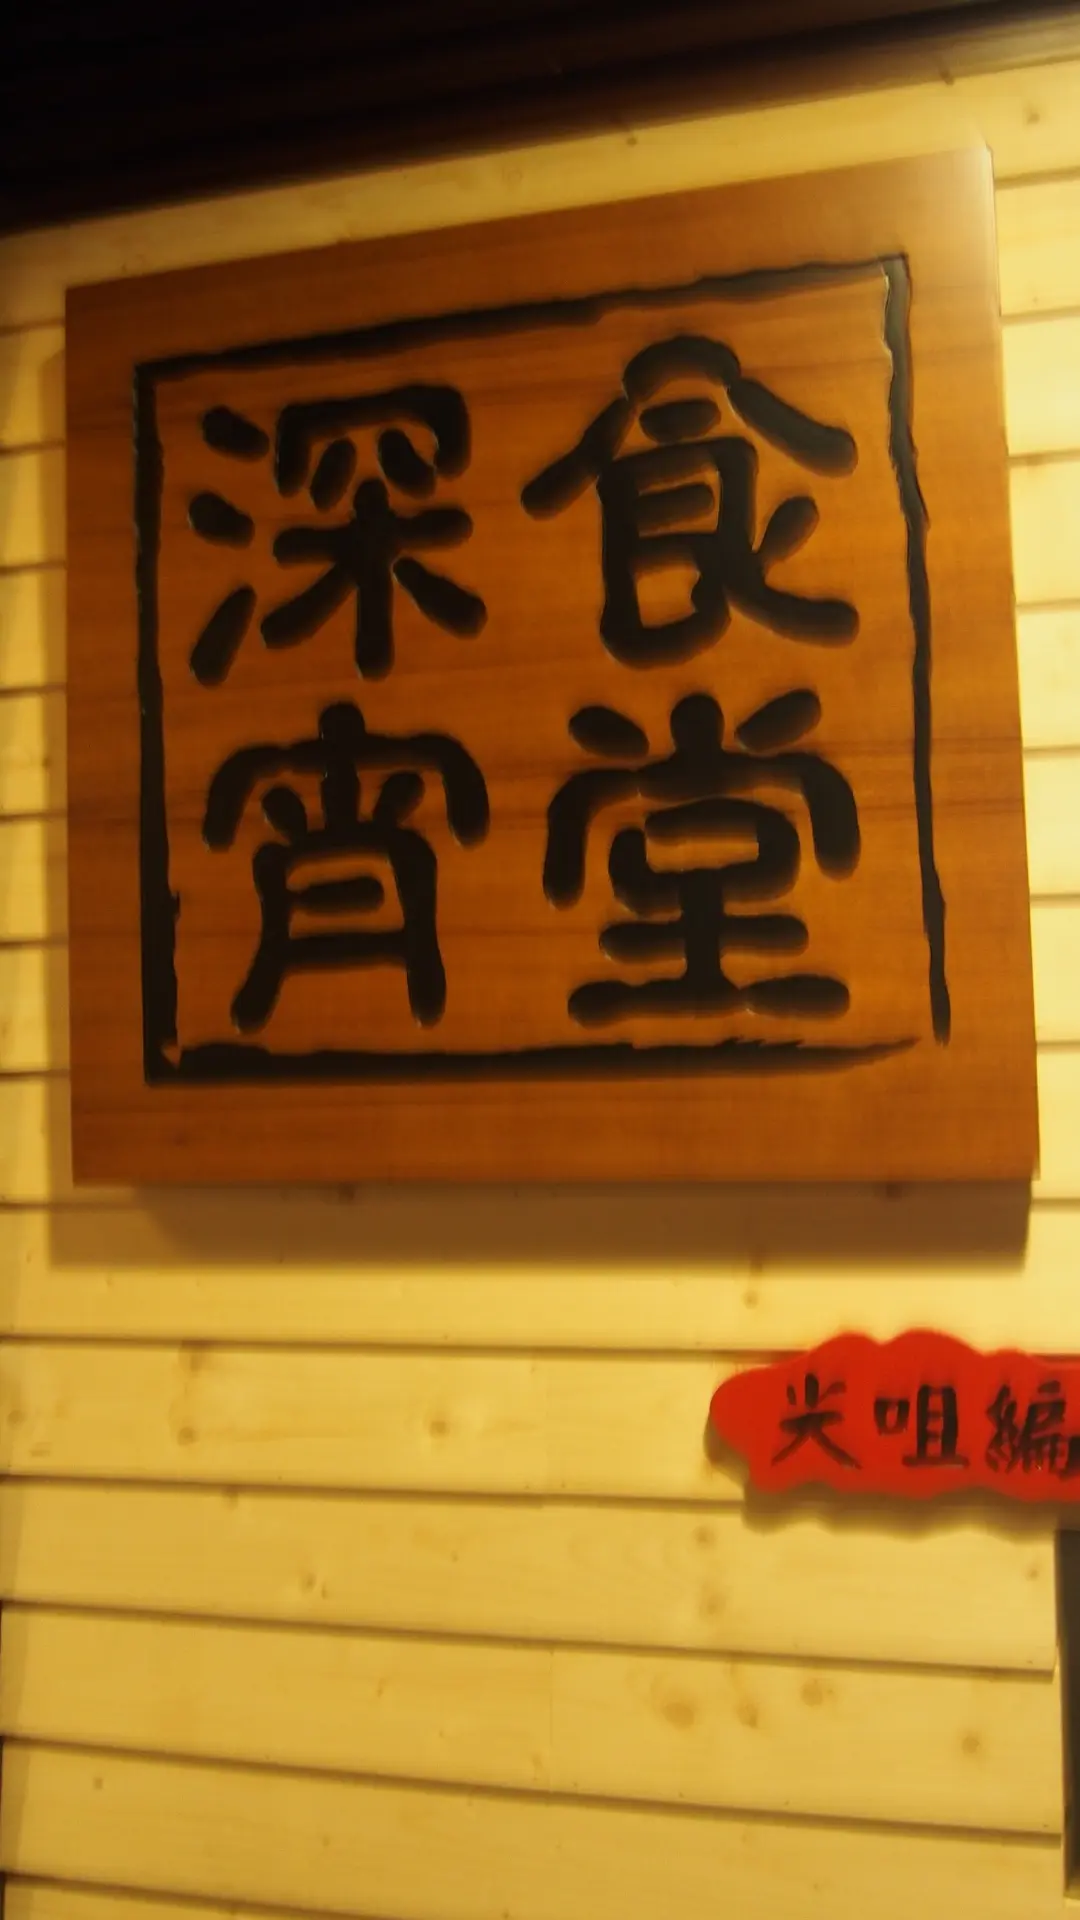 深宵
食堂
尖咀編